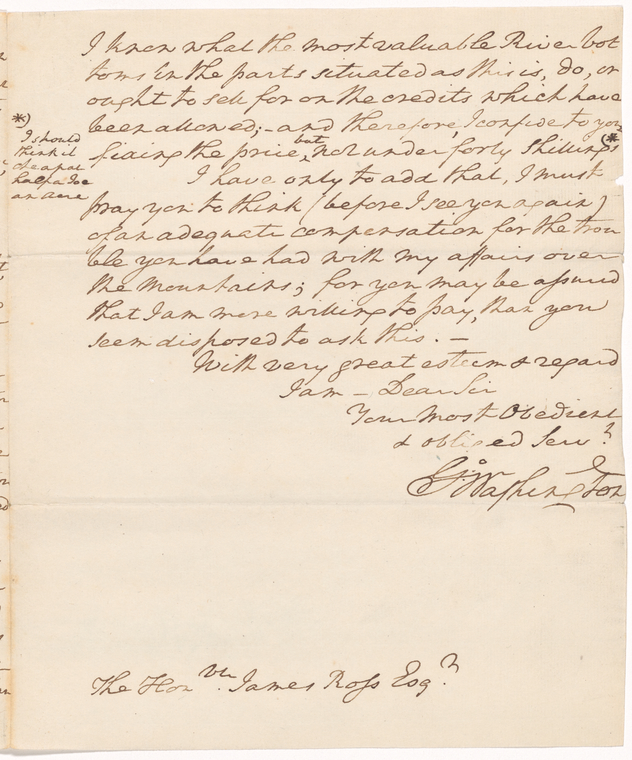 I know what the most valuable River bot
toms in the parts situated as this is, do, or
ought to sell for on the credits which have
been allowed;—and therefore, I confide to you
fixing the price, but not under forty shillings (*
*)
I should
think it
cheap at
half a Joe
an acre
I have only to add that, I must
pray you to think (before I see you again)
of an adequate compensation for the trou
ble you have had with my affairs over
the Mountains; for you may be assured
that I am more willing to pay, than you
seem disposed to ask this.—
With very great esteem & regard
I am — Dear Sir
Your Most Obedient
& obliged Serv.t
G:o Washington
The Hon.ble James Ross Esq.r